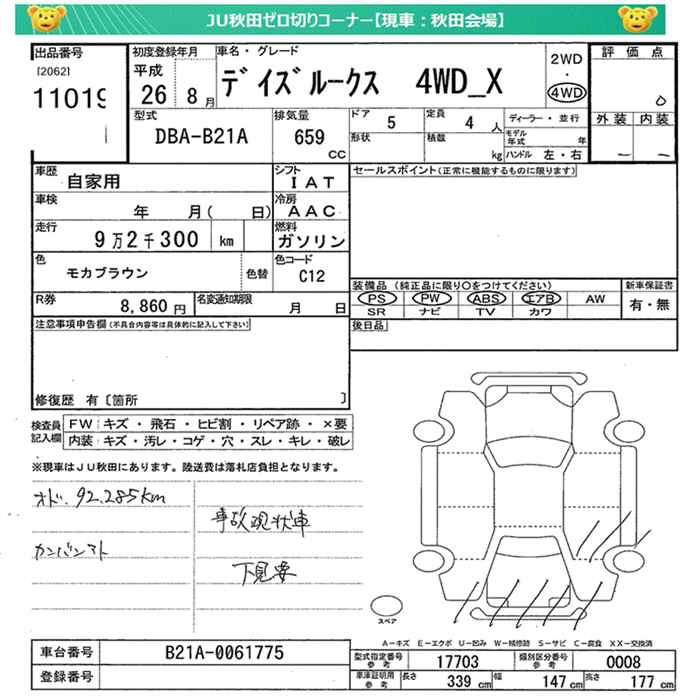 JU秋田ゼロ切りコーナー【現車：秋田会場】
出品番号
[2062]
11019
初度登録年月
平成
26 8月
車名・グレード
デイズルークス 4WD_X
2WD
・
4WD
評価点
0
外装 内装
－ －
型式
DBA-B21A
排気量
659
cc
ドア
5
定員
4 人
形状
積載
kg
ディーラー・並行
モデル年式 年
ハンドル 左・右
車歴
自家用
シフト
IAT
セールスポイント(正常に機能するものに限ります)
車検
年 月( 日)
冷房
AAC
走行
9万2千300 km
燃料
ガソリン
色
モカブラウン
色替
色コード
C12
装備品 (純正品に限り○をつけてください)
PS PW ABS エアB AW
SR ナビ TV カワ
新車保証書
有・無
R券
8,860 円
名変通知期限
月 日
後日品
注意事項申告欄(不具合内容等は具体的に記入して下さい)
修復歴 有〔箇所 〕
検査員
記入欄
FW キズ・飛石・ヒビ割・リペア跡・×要
内装 キズ・汚レ・コゲ・穴・スレ・キレ・破レ
※現車はJU秋田にあります。陸送費は落札店負担となります。
オド.92.285km
事故現状車
下見要
スペア
A-キズ E-エクボ U-凹み W-補修跡 S-サビ C-腐食 XX-交換済
車台番号
B21A-0061775
登録番号
型式指定番号
参考
17703
類別区分番号
参考
0008
車庫証明用
参考
長さ
339 cm
幅
147 cm
高さ
177 cm